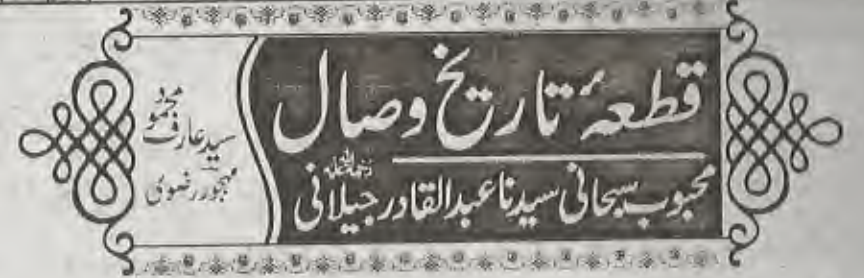 قطعۂ تاریخ وصال
محبوب سبحانی سیدنا عبدالقادر جیلانی رحمۃ اللہ علیہ
سید عارف محمود
مہجور رضوی